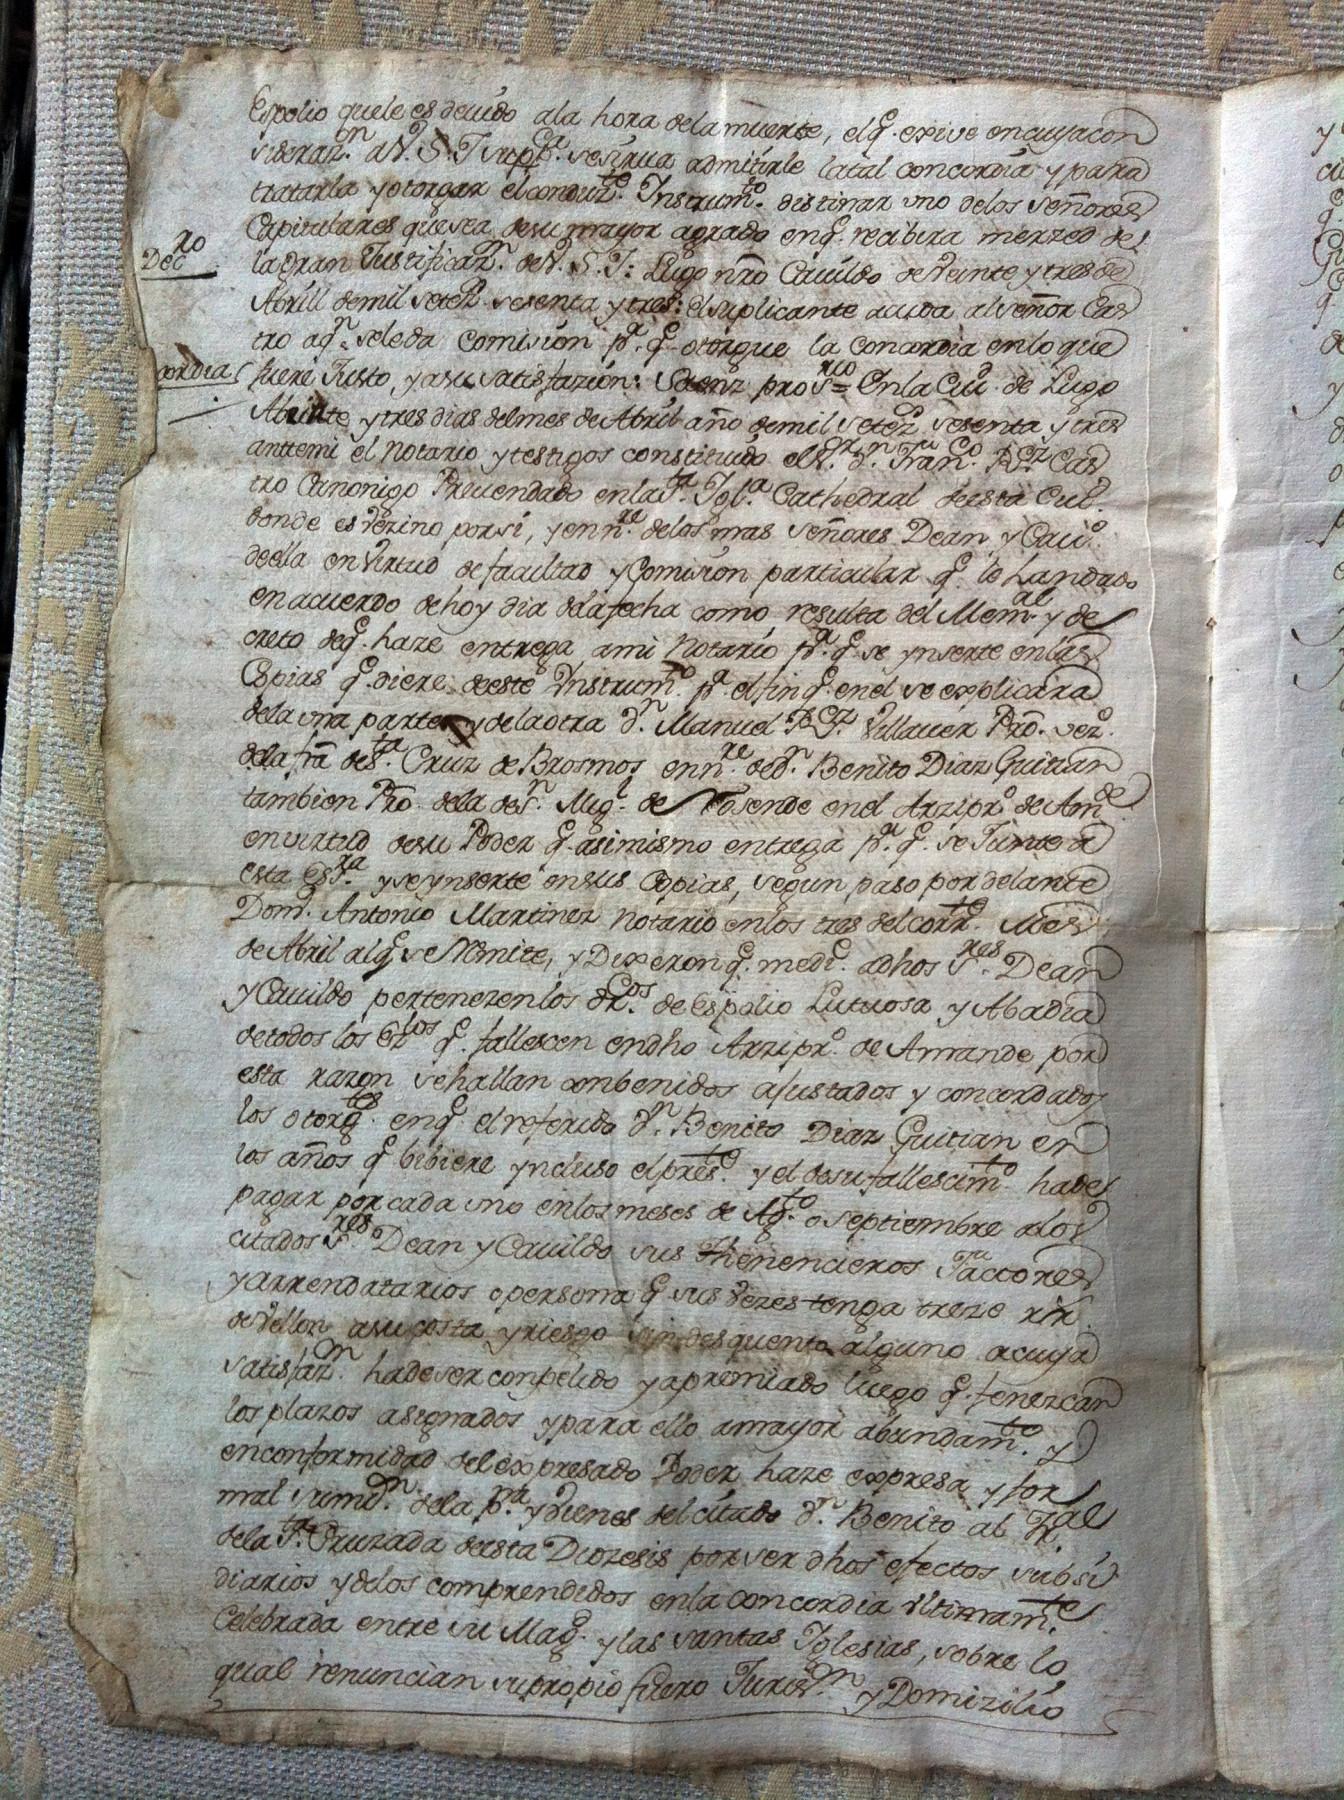 Espolio quele es devido ala hora delamuerte, elq.e exive encuyacon
sideraz.n aV.S.I supp.ca sesirva admitirle latal concordia ypara
tratarla yotorgar el conduz.te Instrum.to distinar uno delos señores
Capitulares quesea desu mayor agrado enq.e recibira merzed de
Dec.ro
la Gran Justificaz.n deV.S.I: Lugo nrõ Cavildo deVeinte ytres de
Abrill demil setez.s sesenta ytres: elsuplicante acuda alseñor Cas
tro aq.n seleda comision p.a q.e otorgue la concordia enlo que
cordia
fuere Justo, yasu satisfazion: Saenz pro s.rio = Enla Ciu.d de Lugo
Abeinte ytres dias delmes de Abril año demil setez.s sesenta ytres
anttemi el Notario ytestigos constituido el S.r d.n Fran.co Cas
tro Canonigo Prevendado enla S.ta Igl.a Cathedral deesta Ciu.d
donde es Vezino, porsi, yenn.re delos mas señores Dean y Cav.o
deella enVirtud defacultad y Comision particular q.e le handado
enacuerdo dehoy dia delafecha como resulta del Mem.al y de
creto deq.e haze entrega ami Notario p.a q.e se ynserte enlas
Copias q.e diere deeste Ynstrum.to p.a elfin q.e enel se explicara
dela una parte ydelaotra d.n Manuel Villaver Prõ. vez.o
dela frã deS.ta Cruz de Brosmos enn.re ded.n Benito Diaz Guitian
tambien Prõ dela deS.n Mig.l de Rosende enel Arzipr.o de Am.de
envirtud desu Poder q.e asimismo entrega p.a q.e se Junte a
esta es.ra yseynserte ensus Copias, segun paso pordelante
Dom.o Antonio Martinez Notario enlos tres delcorr.te Mes
de Abril alq.e se Rêmite, y Dixeron q.e med.e adhos S.res Dean
y Cavildo pertenezenlos dr.cos de Espolio Luctuosa y Abadia
detodos los Ez.cos q.e fallescen endho Arzipr.o de Amande por
esta razon sehallan conbenidos ajustados y concordados
los otorg.tes enq.e elreferido d.n Benito Diaz Guitian en
los años q.e bibiere yncluso elpres.te y el desu fallescim.to hade
pagar porcada uno enlosmeses de Ag.to o septiembre alos
citados S.res Dean y Cavildo sus Thenencieros Factores
yarrendatarios opersona q.e sus Vezes tenga treze rr.s
deVellon asu costa yriesgo sin desquento alguno acuya
satisfaz.n hadeser conpelido yapremiado luego q.e fenezcan
los plazos asignados ypara ello amayor abundam.to y
enconformidad delexpresado Poder haze expresa y for
mal sumis.n dela p.na yvienes delcitado d.n Benito al tr.al
dela S.ta Cruzada deesta Diozesis porser dhos efectos subsi
diarios ydelos comprendidos enla concordia Vltimam.te
Celebrada entre su Mag.d ylas santas Iglesias, sobre lo
qual renuncian supropio fuero Juris.on y Domizilio